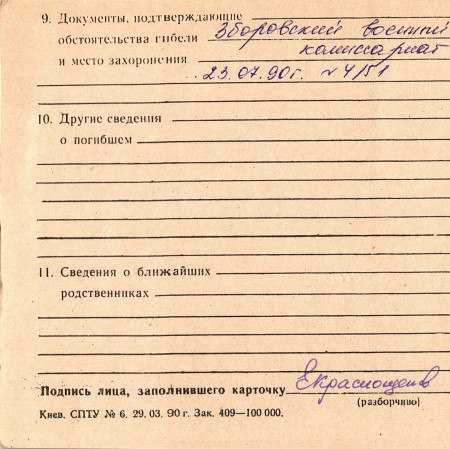 9. Документы, подтверждающие
обстоятельства гибели Зборовский военный
и место захоронения комиссариат
23.07.90г. № 4/51
10. Другие сведения
о погибшем
11. Сведения о ближайших
родственниках
Подпись лица, заполнившего карточку
(разборчиво)
Киев. СПТУ № 6. 29. 03. 90 г. Зак. 409—100 000.